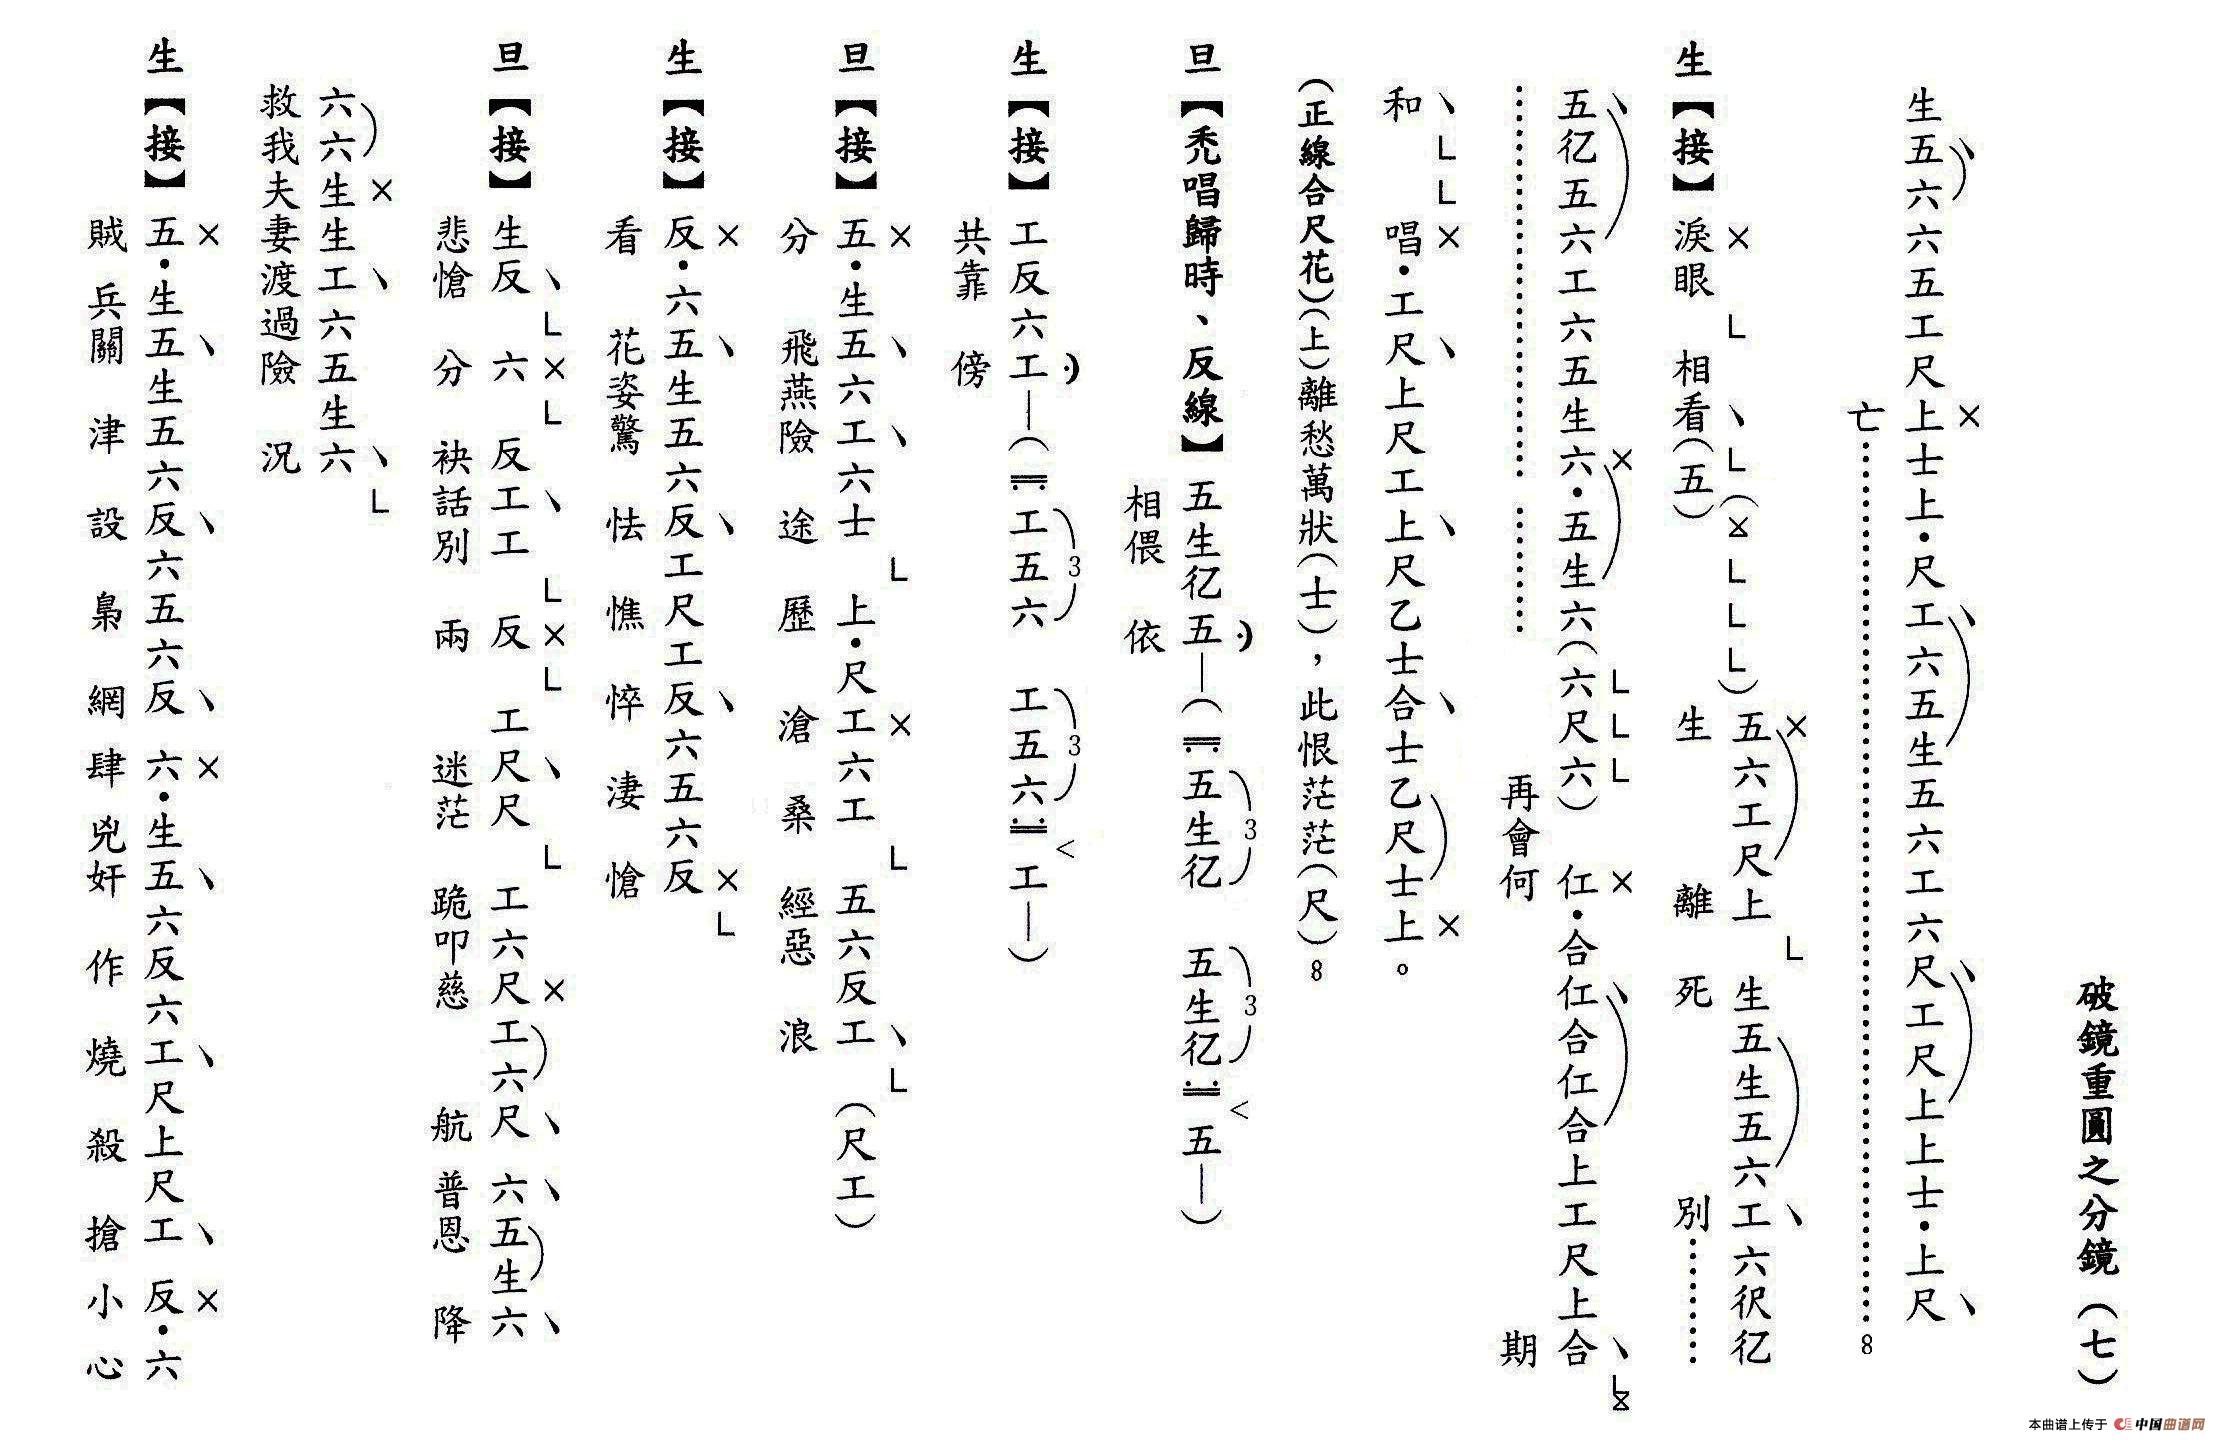 破鏡重圓之分鏡（七）
生五六六五工尺上士上•尺工六五生五六工六尺工尺上上士•上尺
亡 8
生【接】淚眼 相看（五） 五六工尺上 生五生五六工六伬亿
生 離 死 別
五亿五六工六五生六•五生六（六尺六） 仜•合仜合仜合上工尺上合
再會何 期
和 唱•工尺上尺工上尺乙士合士乙尺士上。
（正線合尺花）（上）離愁萬狀（士），此恨茫茫（尺）8
旦【禿唱歸時、反線】五生亿五—（五生亿 五生亿 五—）
相偎 依
3 3
生【接】工反六工—（工五六 工五六 工—）
共靠 傍
3 3
旦【接】五•生五六工六士 上•尺工六工 五六反工（尺工）
分 飛燕險 途 歷 滄 桑 經惡 浪
生【接】反•六五生五六反工尺工反六五六反
看 花姿驚 怯 憔 悴 淒 愴
旦【接】生反 六 反工工 反 工尺尺 工六尺工六尺 六五生六
悲愴 分 袂話別 兩 迷茫 跪叩慈 航 普恩 降
六六生生工六五生六
救我夫妻渡過險 況
生【接】五•生五生五六反六五六反 六•生五六反六工尺上尺工 反•六
賊 兵關 津 設 梟 網 肆 兇奸 作 燒 殺 搶 小 心
本曲谱上传于 中国曲谱网